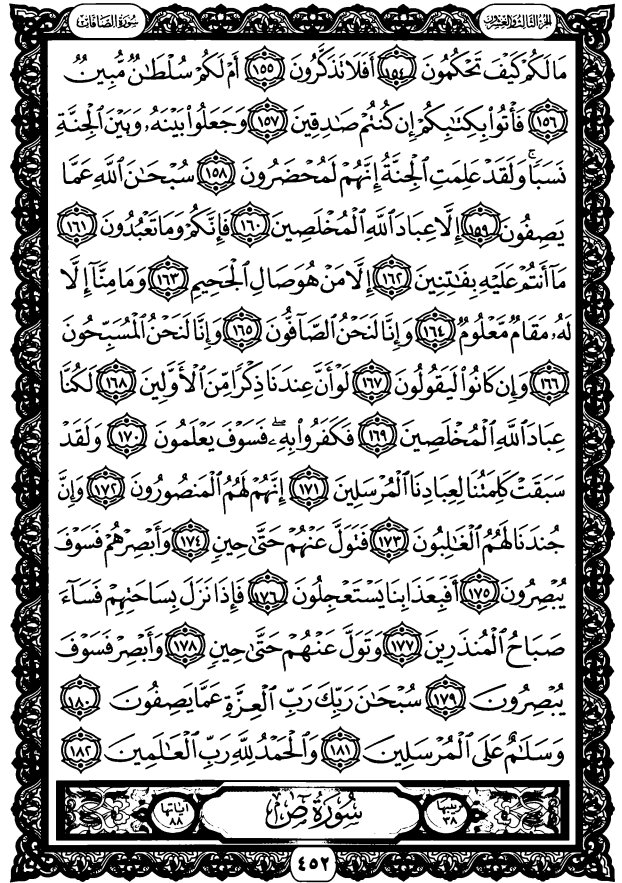 الجزء الثالث والعشرون
سورة الصافات
مَا لَكُمْ كَيْفَ تَحْكُمُونَ ١٥٤ أَفَلَا تَذَكَّرُونَ ١٥٥ أَمْ لَكُمْ سُلْطَانٌ مُّبِينٌ
١٥٦ فَأْتُوا بِكِتَابِكُمْ إِن كُنتُمْ صَادِقِينَ ١٥٧ وَجَعَلُوا بَيْنَهُ وَبَيْنَ الْجِنَّةِ
نَسَبًا ۚ وَلَقَدْ عَلِمَتِ الْجِنَّةُ إِنَّهُمْ لَمُحْضَرُونَ ١٥٨ سُبْحَانَ اللَّهِ عَمَّا
يَصِفُونَ ١٥٩ إِلَّا عِبَادَ اللَّهِ الْمُخْلَصِينَ ١٦٠ فَإِنَّكُمْ وَمَا تَعْبُدُونَ ١٦١
مَا أَنتُمْ عَلَيْهِ بِفَاتِنِينَ ١٦٢ إِلَّا مَنْ هُوَ صَالِ الْجَحِيمِ ١٦٣ وَمَا مِنَّا إِلَّا
لَهُ مَقَامٌ مَّعْلُومٌ ١٦٤ وَإِنَّا لَنَحْنُ الصَّافُّونَ ١٦٥ وَإِنَّا لَنَحْنُ الْمُسَبِّحُونَ
١٦٦ وَإِن كَانُوا لَيَقُولُونَ ١٦٧ لَوْ أَنَّ عِندَنَا ذِكْرًا مِّنَ الْأَوَّلِينَ ١٦٨ لَكُنَّا
عِبَادَ اللَّهِ الْمُخْلَصِينَ ١٦٩ فَكَفَرُوا بِهِ ۖ فَسَوْفَ يَعْلَمُونَ ١٧٠ وَلَقَدْ
سَبَقَتْ كَلِمَتُنَا لِعِبَادِنَا الْمُرْسَلِينَ ١٧١ إِنَّهُمْ لَهُمُ الْمَنصُورُونَ ١٧٢ وَإِنَّ
جُندَنَا لَهُمُ الْغَالِبُونَ ١٧٣ فَتَوَلَّ عَنْهُمْ حَتَّىٰ حِينٍ ١٧٤ وَأَبْصِرْهُمْ فَسَوْفَ
يُبْصِرُونَ ١٧٥ أَفَبِعَذَابِنَا يَسْتَعْجِلُونَ ١٧٦ فَإِذَا نَزَلَ بِسَاحَتِهِمْ فَسَاءَ
صَبَاحُ الْمُنذَرِينَ ١٧٧ وَتَوَلَّ عَنْهُمْ حَتَّىٰ حِينٍ ١٧٨ وَأَبْصِرْ فَسَوْفَ
يُبْصِرُونَ ١٧٩ سُبْحَانَ رَبِّكَ رَبِّ الْعِزَّةِ عَمَّا يَصِفُونَ ١٨٠
وَسَلَامٌ عَلَى الْمُرْسَلِينَ ١٨١ وَالْحَمْدُ لِلَّهِ رَبِّ الْعَالَمِينَ ١٨٢
ترتيبها ٣٨
سُورَةُ ص
آياتها ٨٨
٤٥٢